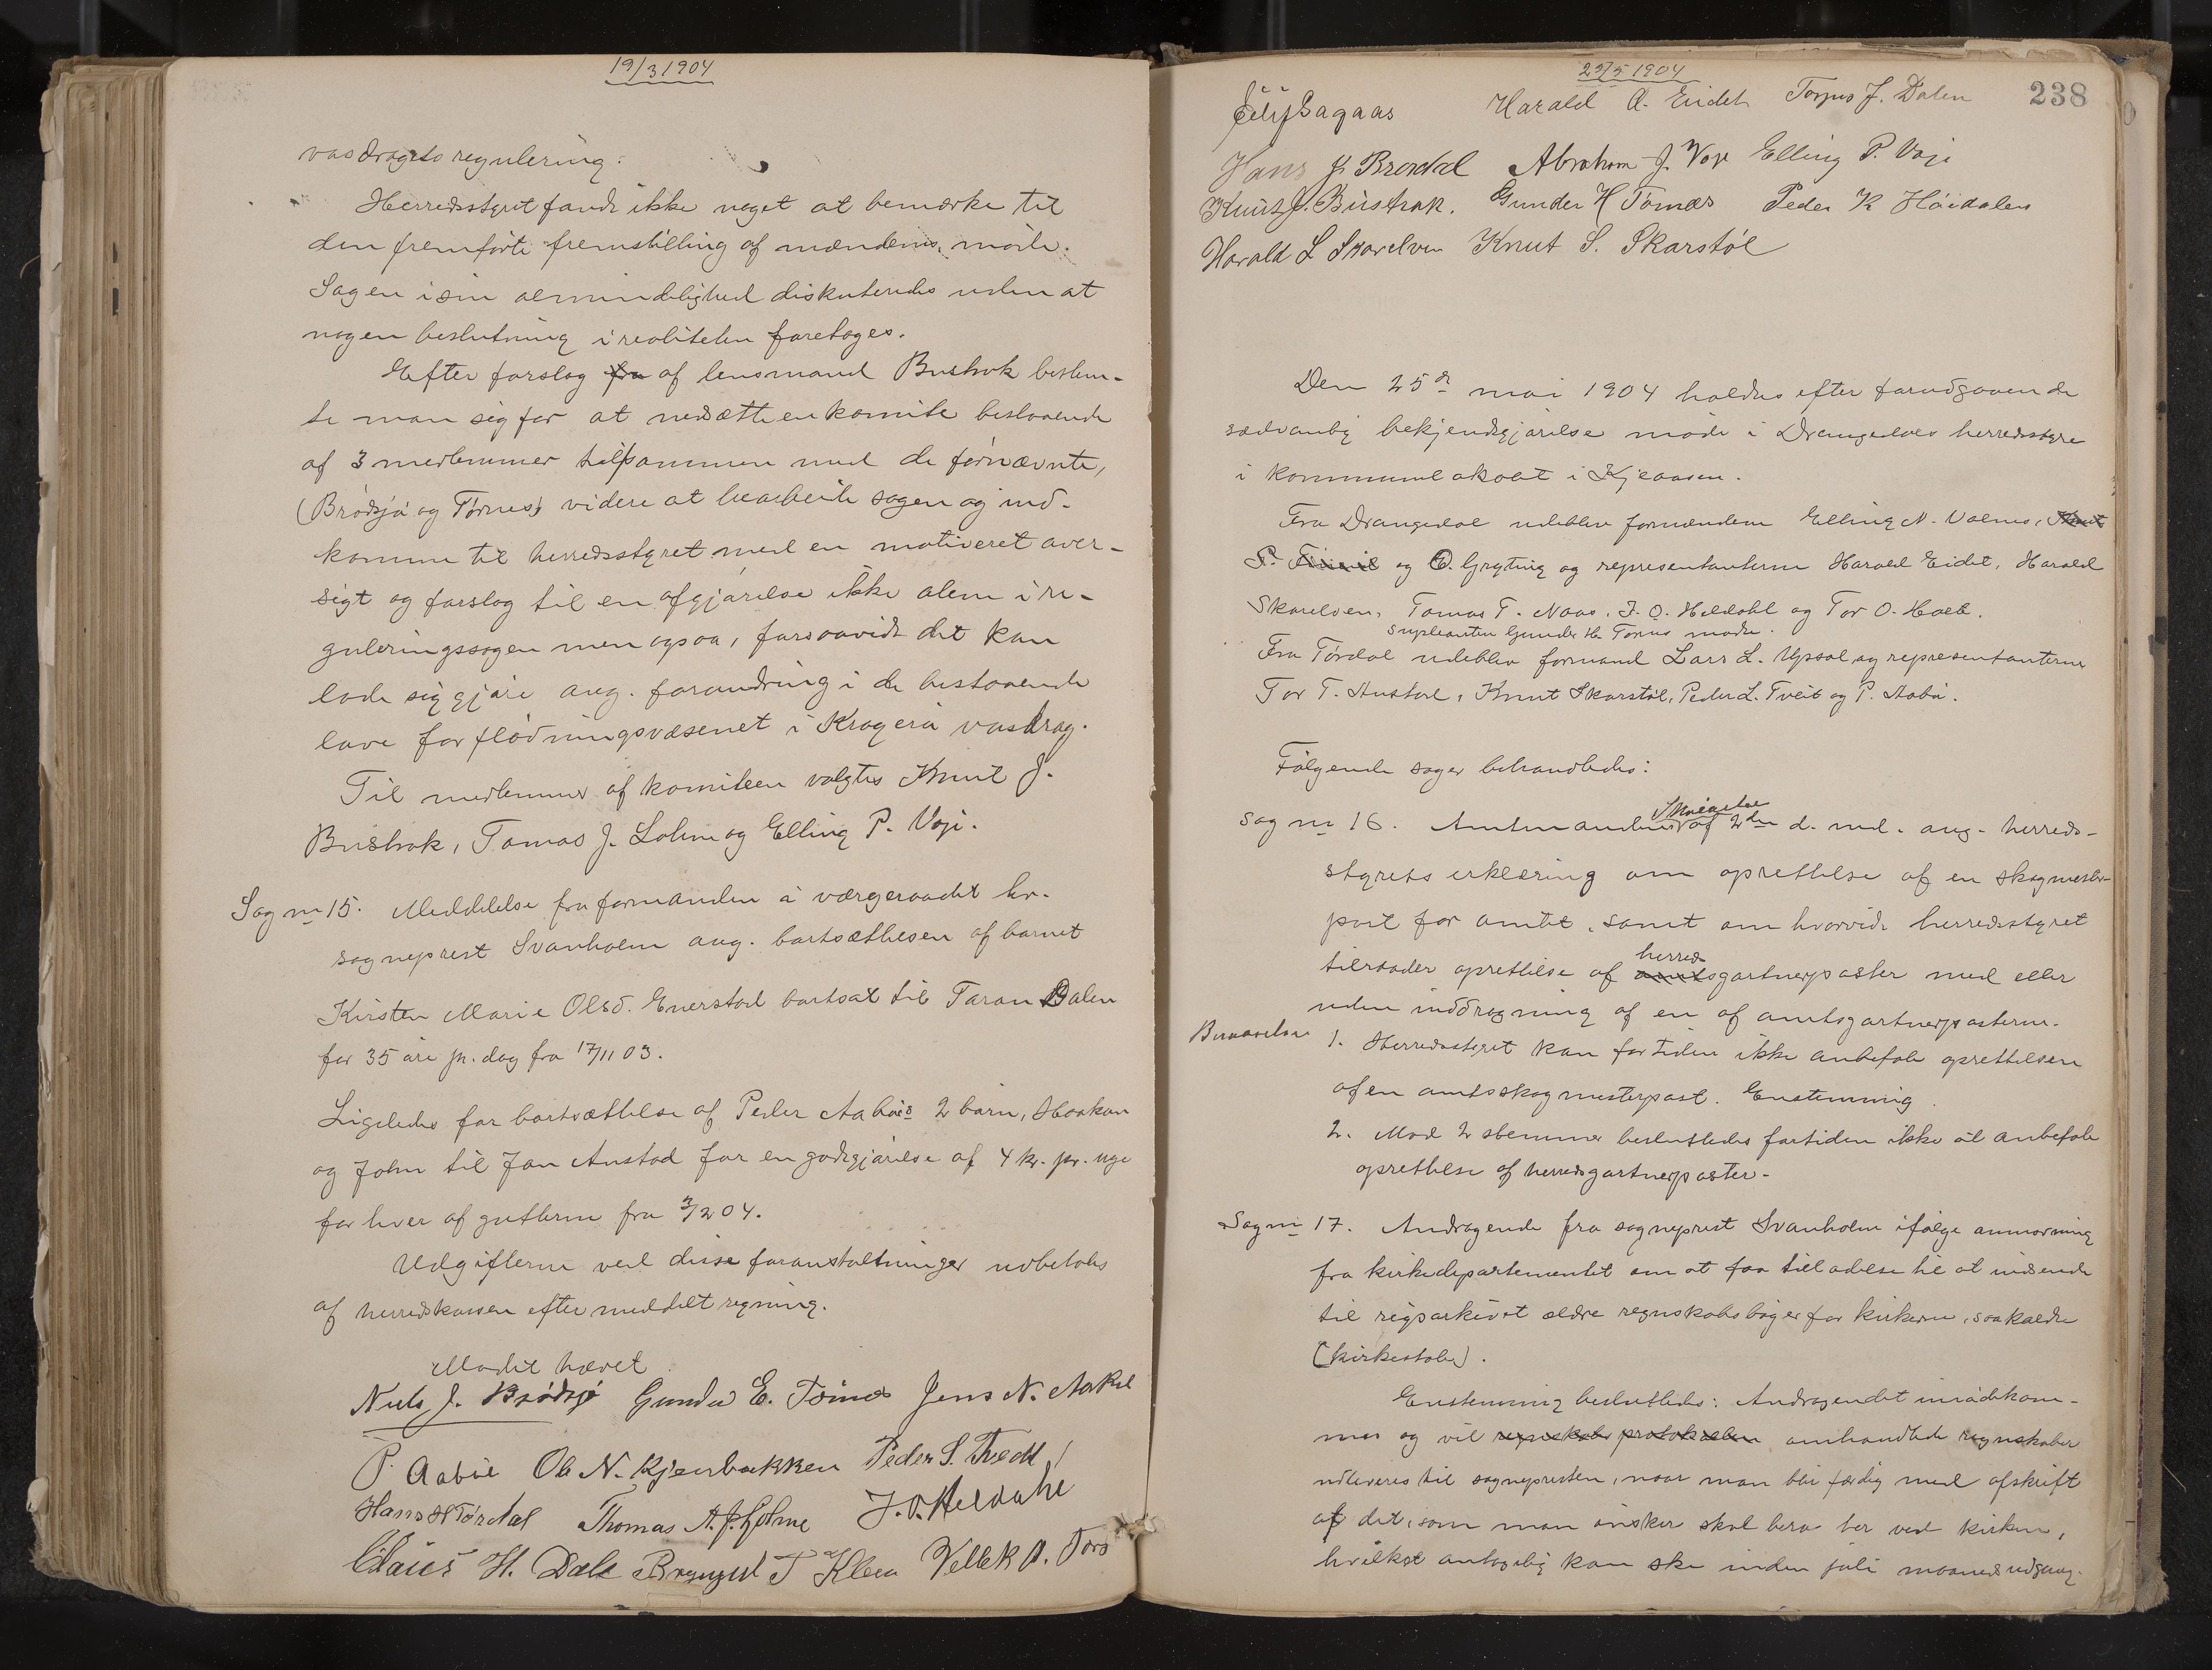 19/3 1904
vasdragets regulering.
Herredsstyret fandt ikke noget at bemærke til
den fremførte fremstilling af mændenes møde.
Sagen i sin almindelighed diskuteredes uden at
nogen beslutning i realiteten foretoges.
Efter forslag fra af lensmand Bustrak bestem-
te man sig for at nedsætte en komite bestaaende
af 3 medlemmer tilsammen med de førnævnte,
(Brødsjø og Tørnes) videre at bearbeide sagen og ind-
komme til herredsstyret med en motiveret over-
sigt og forslag til en afgjørelse ikke alene i re-
guleringssagen men ogsaa, forsaavidt det kan
lade sig gjøre ang. forandring i de bestaaende
love for flødningsvæsenet i Kragerø vasdrag.
Til medlemmer af komiteen valgtes Knut J.
Bustrak, Tomas J. Lohne og Elling P. Voje.
Sag nr 15. Meddelelse fra formanden i værgeraadet hr.
sogneprest Svanholm ang. bortsættelsen af barnet
Kirsten Marie Olsd. Enerstad bortsat til Taran Dalen
for 35 øre pr. dag fra 17/11 03.
Ligeledes for bortsættelse af Peder Aabøes 2 børn, Haakon
og John til Jan Austad for en godtgjørelse af 4 kr. pr. uge
for hver af gutterne fra 3/2 04.
Udgifterne ved disse foranstaltninger udbetales
af herredskassen efter meddelt regning.
Mødet hævet
Niels J. Brødsjø Gunder E. Tørnes Jens N. Aakre
P. Aabøe Ole N. Kjenbakken Peder S. Tvedt
Hans H Tørdal Thomas A. J. Lohne J. O. Heldahl
Claus H. Dale Brynjul T Kleva Vellek A. Tors
25/5 1904
238
Harald A. Eidet Torjus J. Dalen
Hans J. Brødal Abraham J. Voje Elling P. Voje
Knut J. Bustrak. Gunder H Tørnes Peder K Høidalen
Harald L Skarelven Knut S. Skarstøl
Den 25de mai 1904 holdtes efter forudgaaende
sædvanlig bekjendtgjørelse møde i Drangedals herredsstyre
i kommunelokalet i Kjeaasen.
Fra Drangedal udeblev formændene Elling N. Valnes, Knut
og O. Gryting og representanterne Harald Eidet, Harald
Skarelven, Tomas T. Naas, J. O. Heldahl og Tor O. Holte.
Supleanten Gunder H. Tørnes mødte.
Fra Tørdal udeblev formand Lars L. Upsal, og representanterne
Tor T. Austad, Knut Skarstøl, Peder L. Tveit og P. Aabø.
Følgende sager behandledes:
Sag nr 16. Amtmandens Skrivelse af 2den d. md. ang. herreds-
styrets erklæring om oprettelse af en skogmester-
post for amtet, samt om hvorvidt herredsstyret
tilraader oprettelse af amts herredsgartnerposter med eller
uden inddragning af en af amtsgartnerposterne.
1. Herredsstyret kan fortiden ikke anbefale oprettelsen
af en amtsskogmesterpost. Enstemmig.
2. Mod 2 stemmer besluttedes fortiden ikke at anbefale
oprettelse af herredsgartnerposter.
Sag nr 17. Andragende fra sogneprest Svanholm ifølge anmodning
fra kirkedepartementet om at faa tilladelse til at indsende
til rigsarkivet ældre regnskabsbøger for kirkerne, saakaldte
(kirkestole).
Enstemmig besluttedes: Andragendet imødekom-
mes og vil regnskabs protokollen omhandlede regnskaber
udleveres til sognepresten, naar man blir færdig med afskrift
af det, som man ønsker skal bero her ved kirken,
hvilket antagelig kan ske inden juli maaneds udgang.